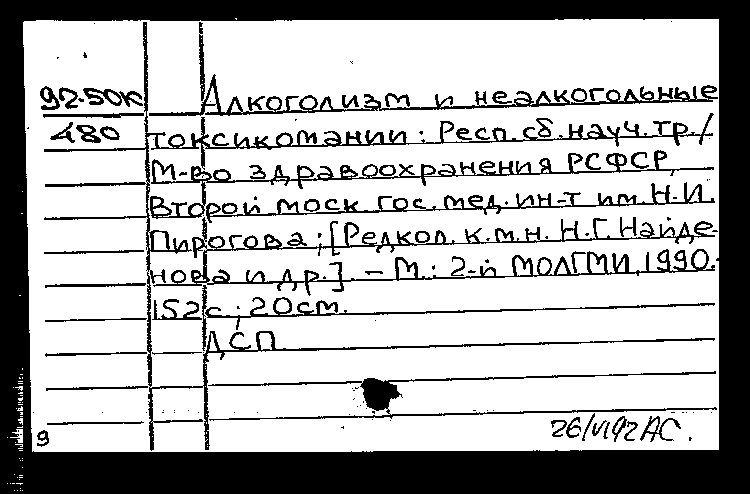 92-50к Алкоголизм и неалкогольные
480 токсикомании: Респ. сб. науч. тр./
М-во здравоохранения РСФСР,
Второй моск. гос. мед. ин-т им. Н.И.
Пирогова; [Редкол. к.м.н. Н.Г. Найде-
нова и др.]. – М.: 2-й МОЛГМИ, 1990.-
152 с.; 20 см.
ДСП
9 26/VI92 АС.